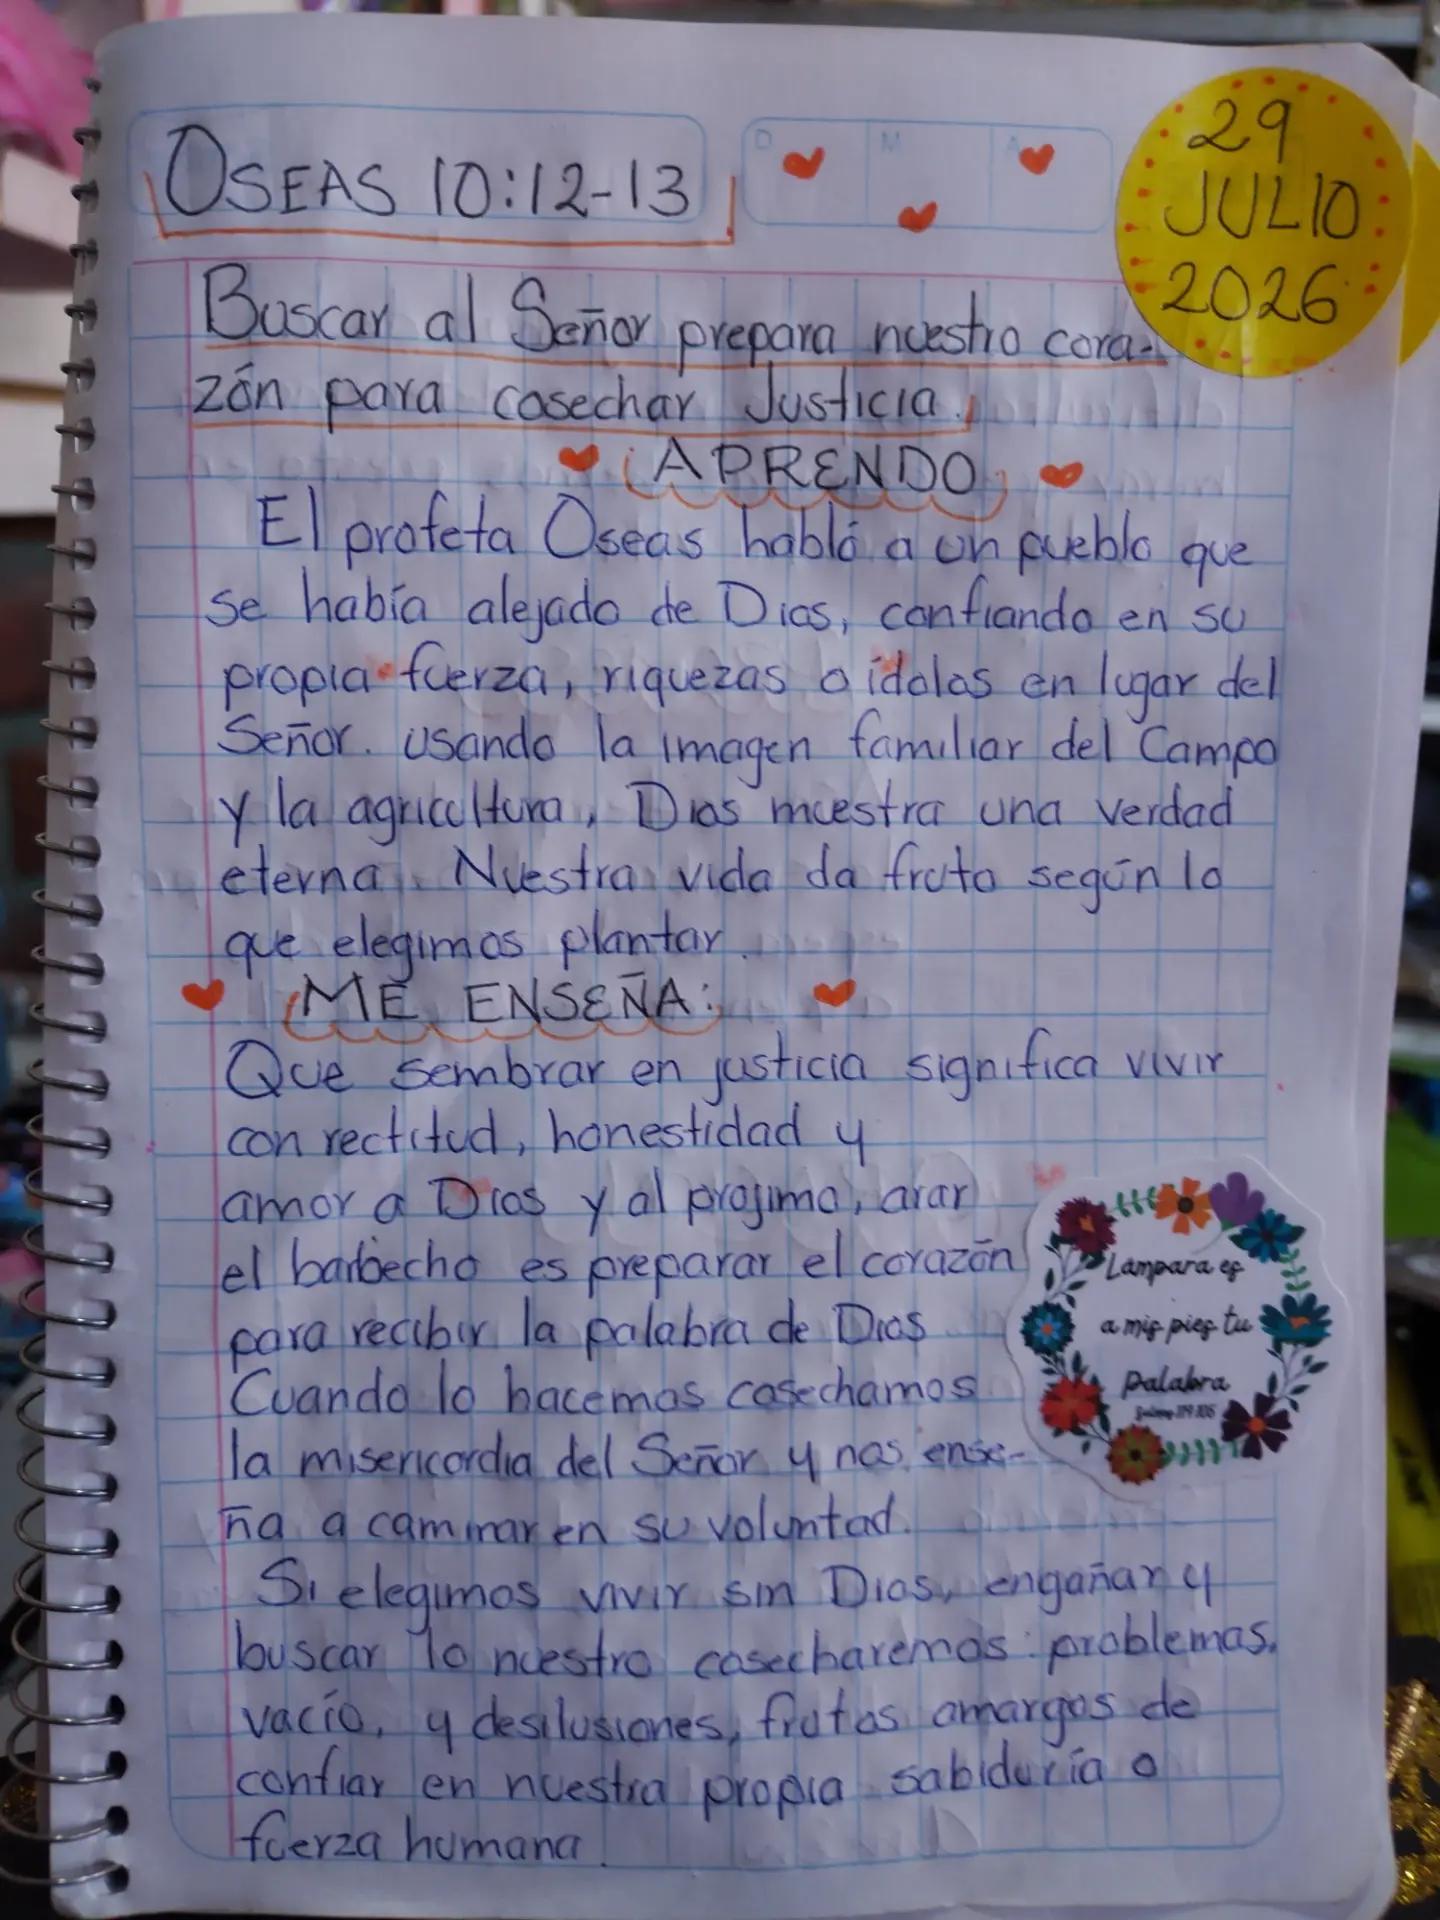 OSEAS 10:12-13
D M A
29
JULIO
2026
Buscar al Señor prepara nuestro cora-
zón para cosechar Justicia.
¡APRENDO¡
El profeta Oseas habló a un pueblo que
se había alejado de Dios, confiando en su
propia fuerza, riquezas o ídolos en lugar del
Señor. usando la imagen familiar del Campo
y la agricultura, Dios muestra una verdad
eterna. Nuestra vida da fruto según lo
que elegimos plantar.
¡ME ENSEÑA:
Que sembrar en justicia significa vivir
con rectitud, honestidad y
amor a Dios y al projimo, arar
el barbecho es preparar el corazón
para recibir la palabra de Dios
Cuando lo hacemos cosechamos
la misericordia del Señor y nos ense-
ña a caminar en su voluntad.
Si elegimos vivir sin Dios, engañar y
buscar lo nuestro cosecharemos: problemas,
vacío, y desilusiones, frutos amargos de
confiar en nuestra propia sabiduría o
fuerza humana.
Lámpara es
a mis pies tu
palabra
Salmo 119:105